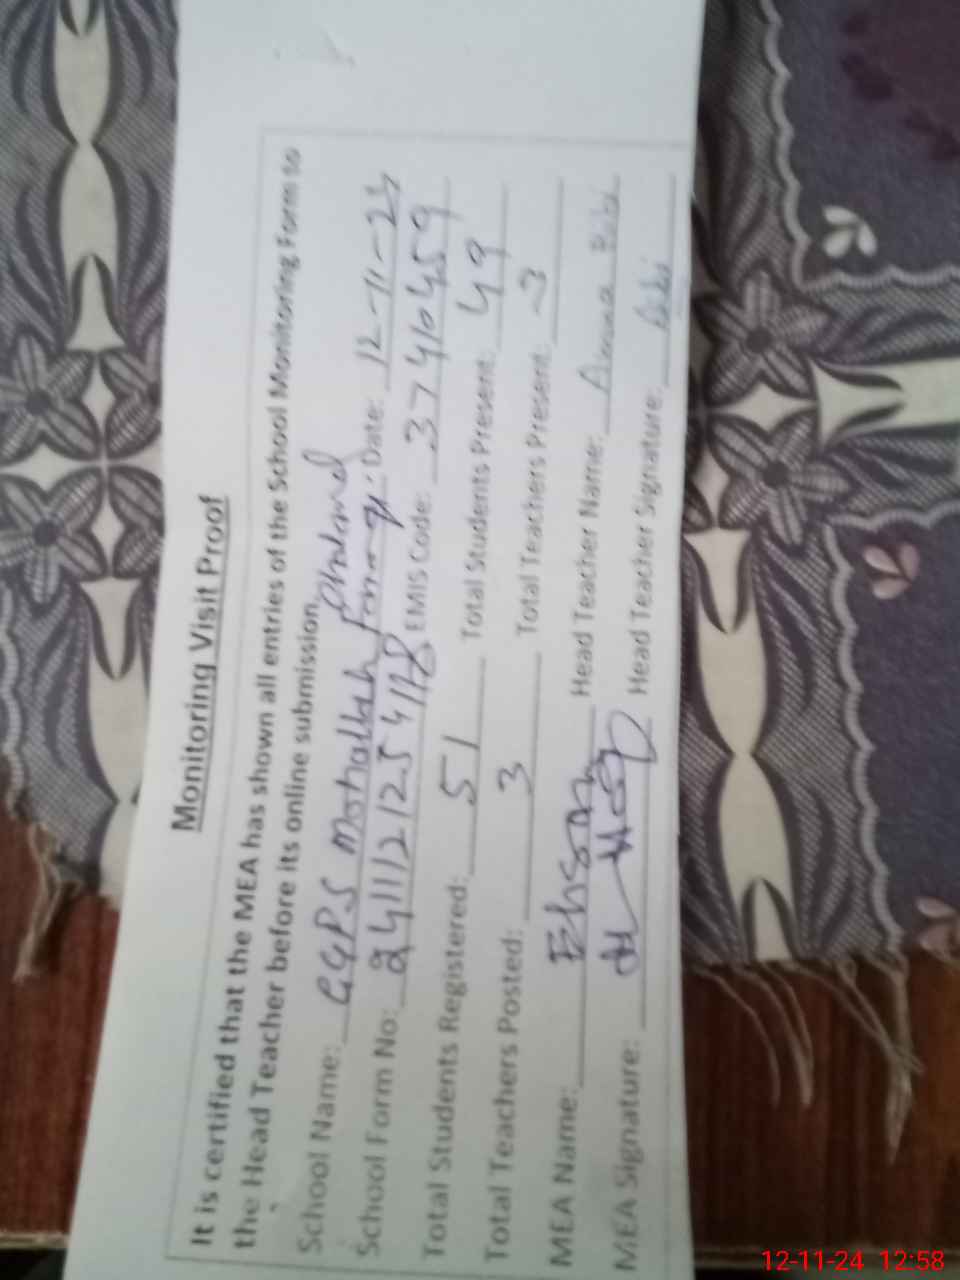 Monitoring Visit Proof
It is certified that the MEA has shown all entries of the School Monitoring Form to
the Head Teacher before its online submission.
School Name: GGPS Mohallah Date: 12-11-24
School Form No: EMIS Code: 37410459
Total Students Registered: 51 Total Students Present: 49
Total Teachers Posted: 3 Total Teachers Present: 3
MEA Name: Ehsan Head Teacher Name: Bibi
MEA Signature: Head Teacher Signature:
12-11-24 12:58